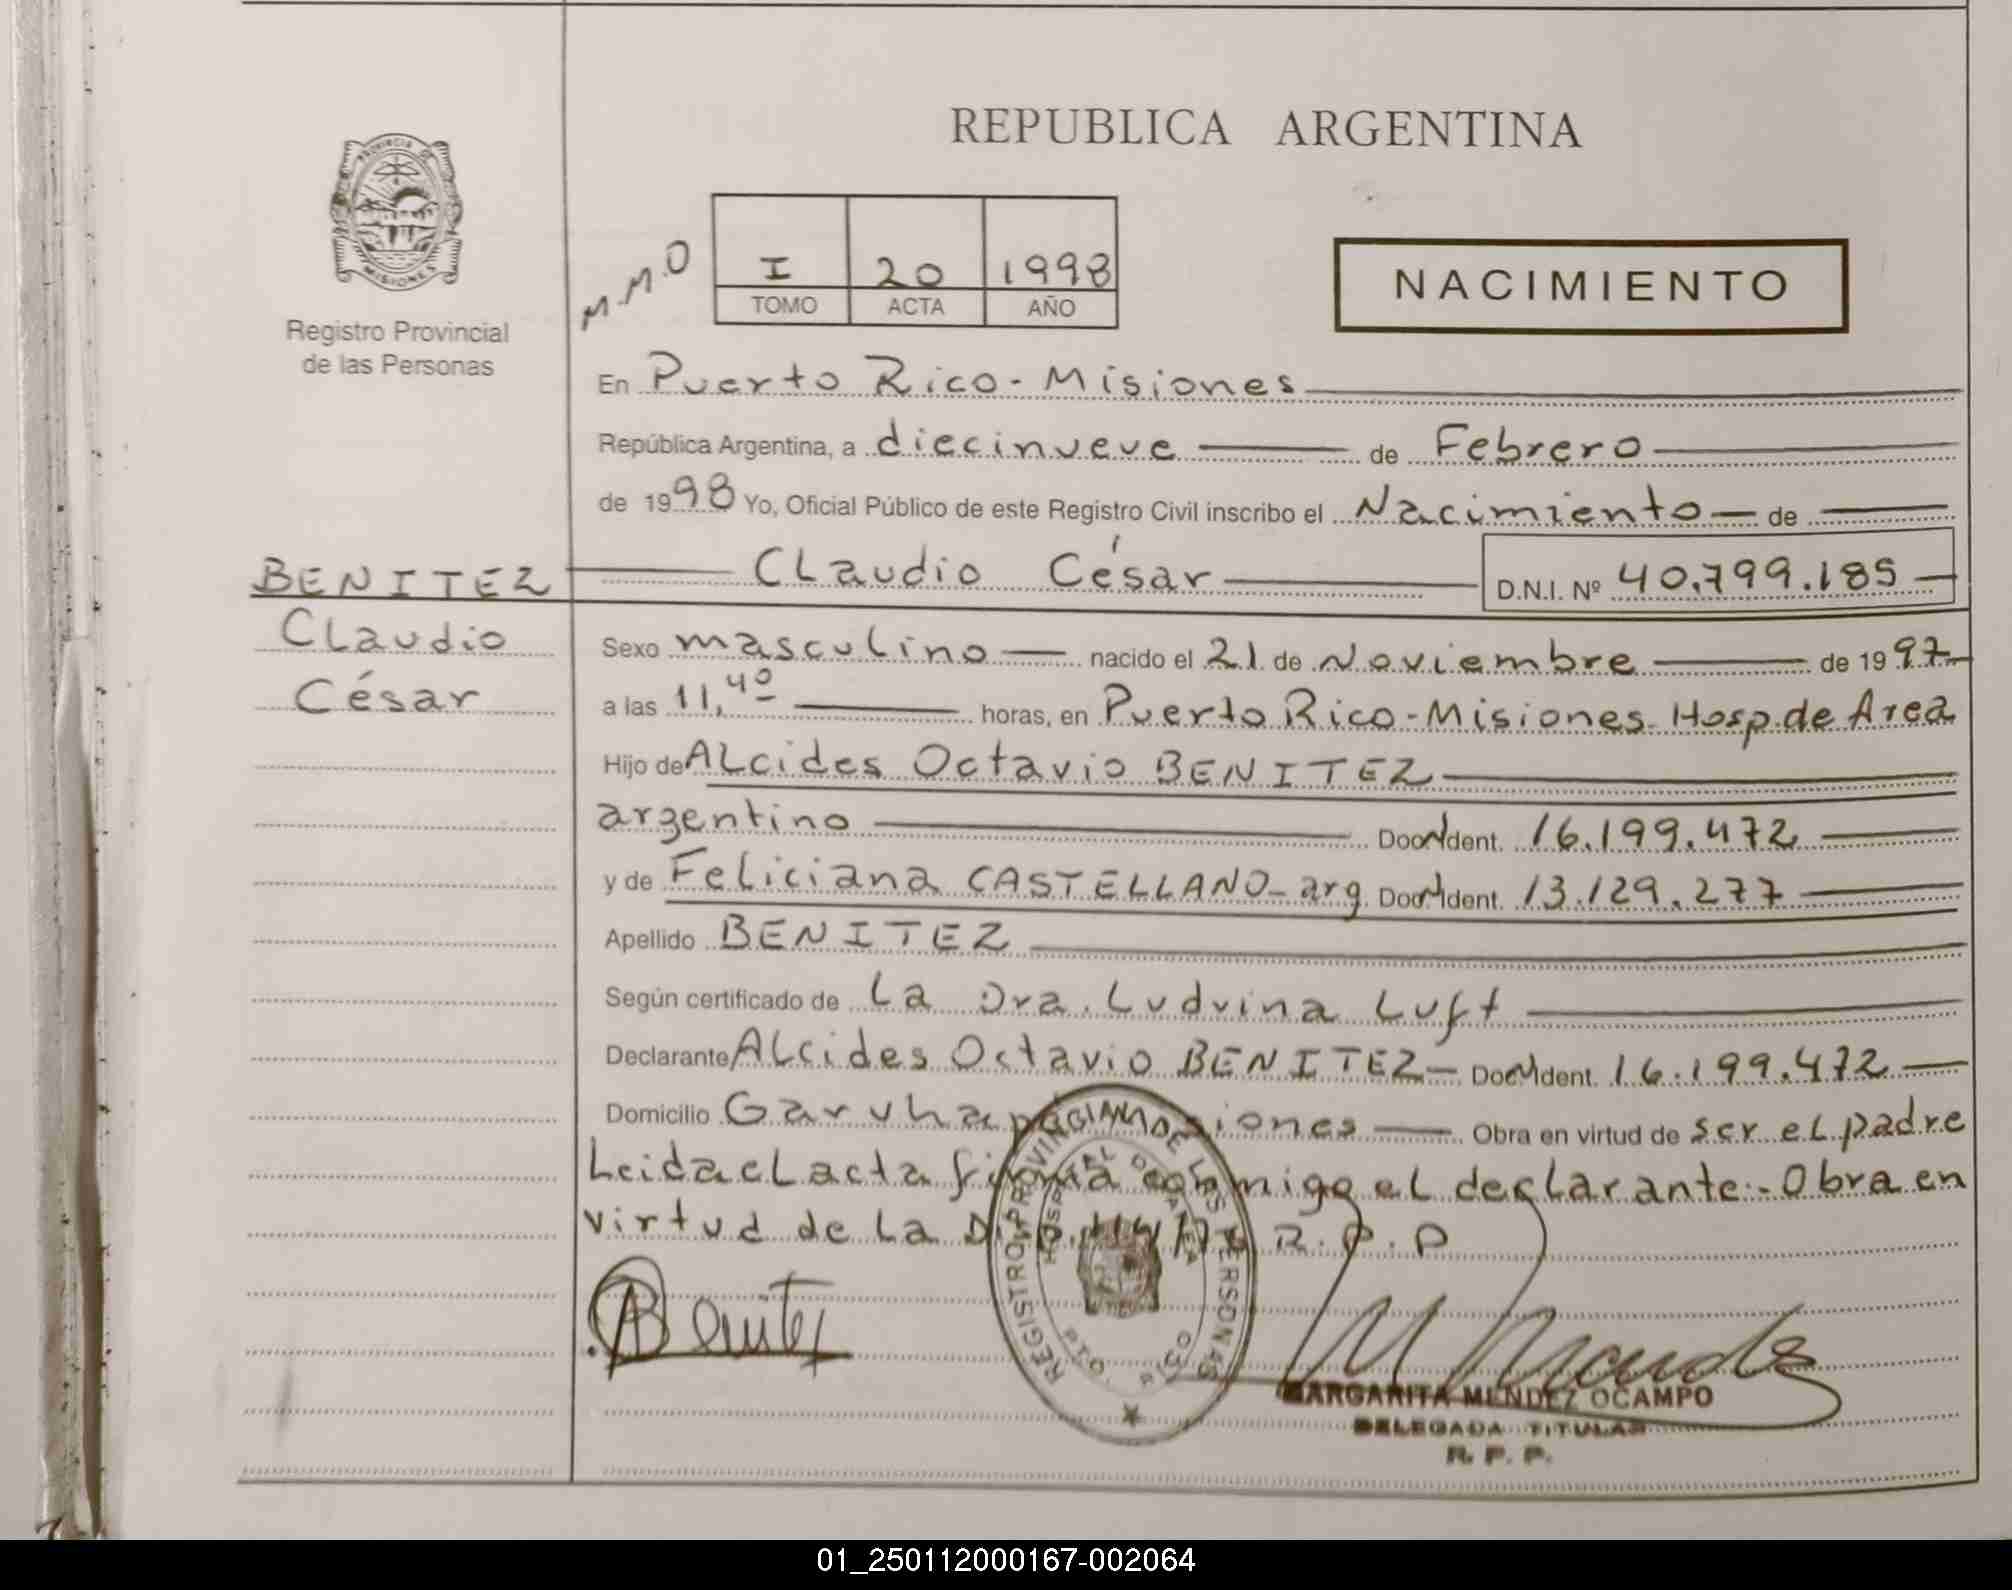 REPUBLICA ARGENTINA
PROVINCIA DE
MISIONES
Registro Provincial
de las Personas
M.M.O
I 20 1998
TOMO ACTA AÑO
NACIMIENTO
En Puerto Rico - Misiones
República Argentina, a diecinueve de Febrero
de 1998 Yo, Oficial Público de este Registro Civil inscribo el Nacimiento de
BENITEZ
Claudio
César
Claudio César D.N.I. Nº 40.799.185
Sexo masculino nacido el 21 de Noviembre de 1997
a las 11,40 horas, en Puerto Rico - Misiones - Hosp. de Area
Hijo de Alcides Octavio BENITEZ
argentino Doc. Ident. 16.199.472
y de Feliciana CASTELLANO - arg. Doc. Ident. 13.129.277
Apellido BENITEZ
Según certificado de La Dra. Ludvina Luft
Declarante Alcides Octavio BENITEZ - Doc. Ident. 16.199.472
Domicilio Garuhapé Misiones Obra en virtud de ser el padre
Leida el acta firma conmigo el declarante - Obra en
virtud de la R.P.P
ABenitez
REGISTRO PROVINCIAL DE LAS PERSONAS
HOSPITAL DE AREA
PTO. RICO
M Mendez
MARGARITA MENDEZ OCAMPO
DELEGADA TITULAR
R. P. P.
01_250112000167-002064